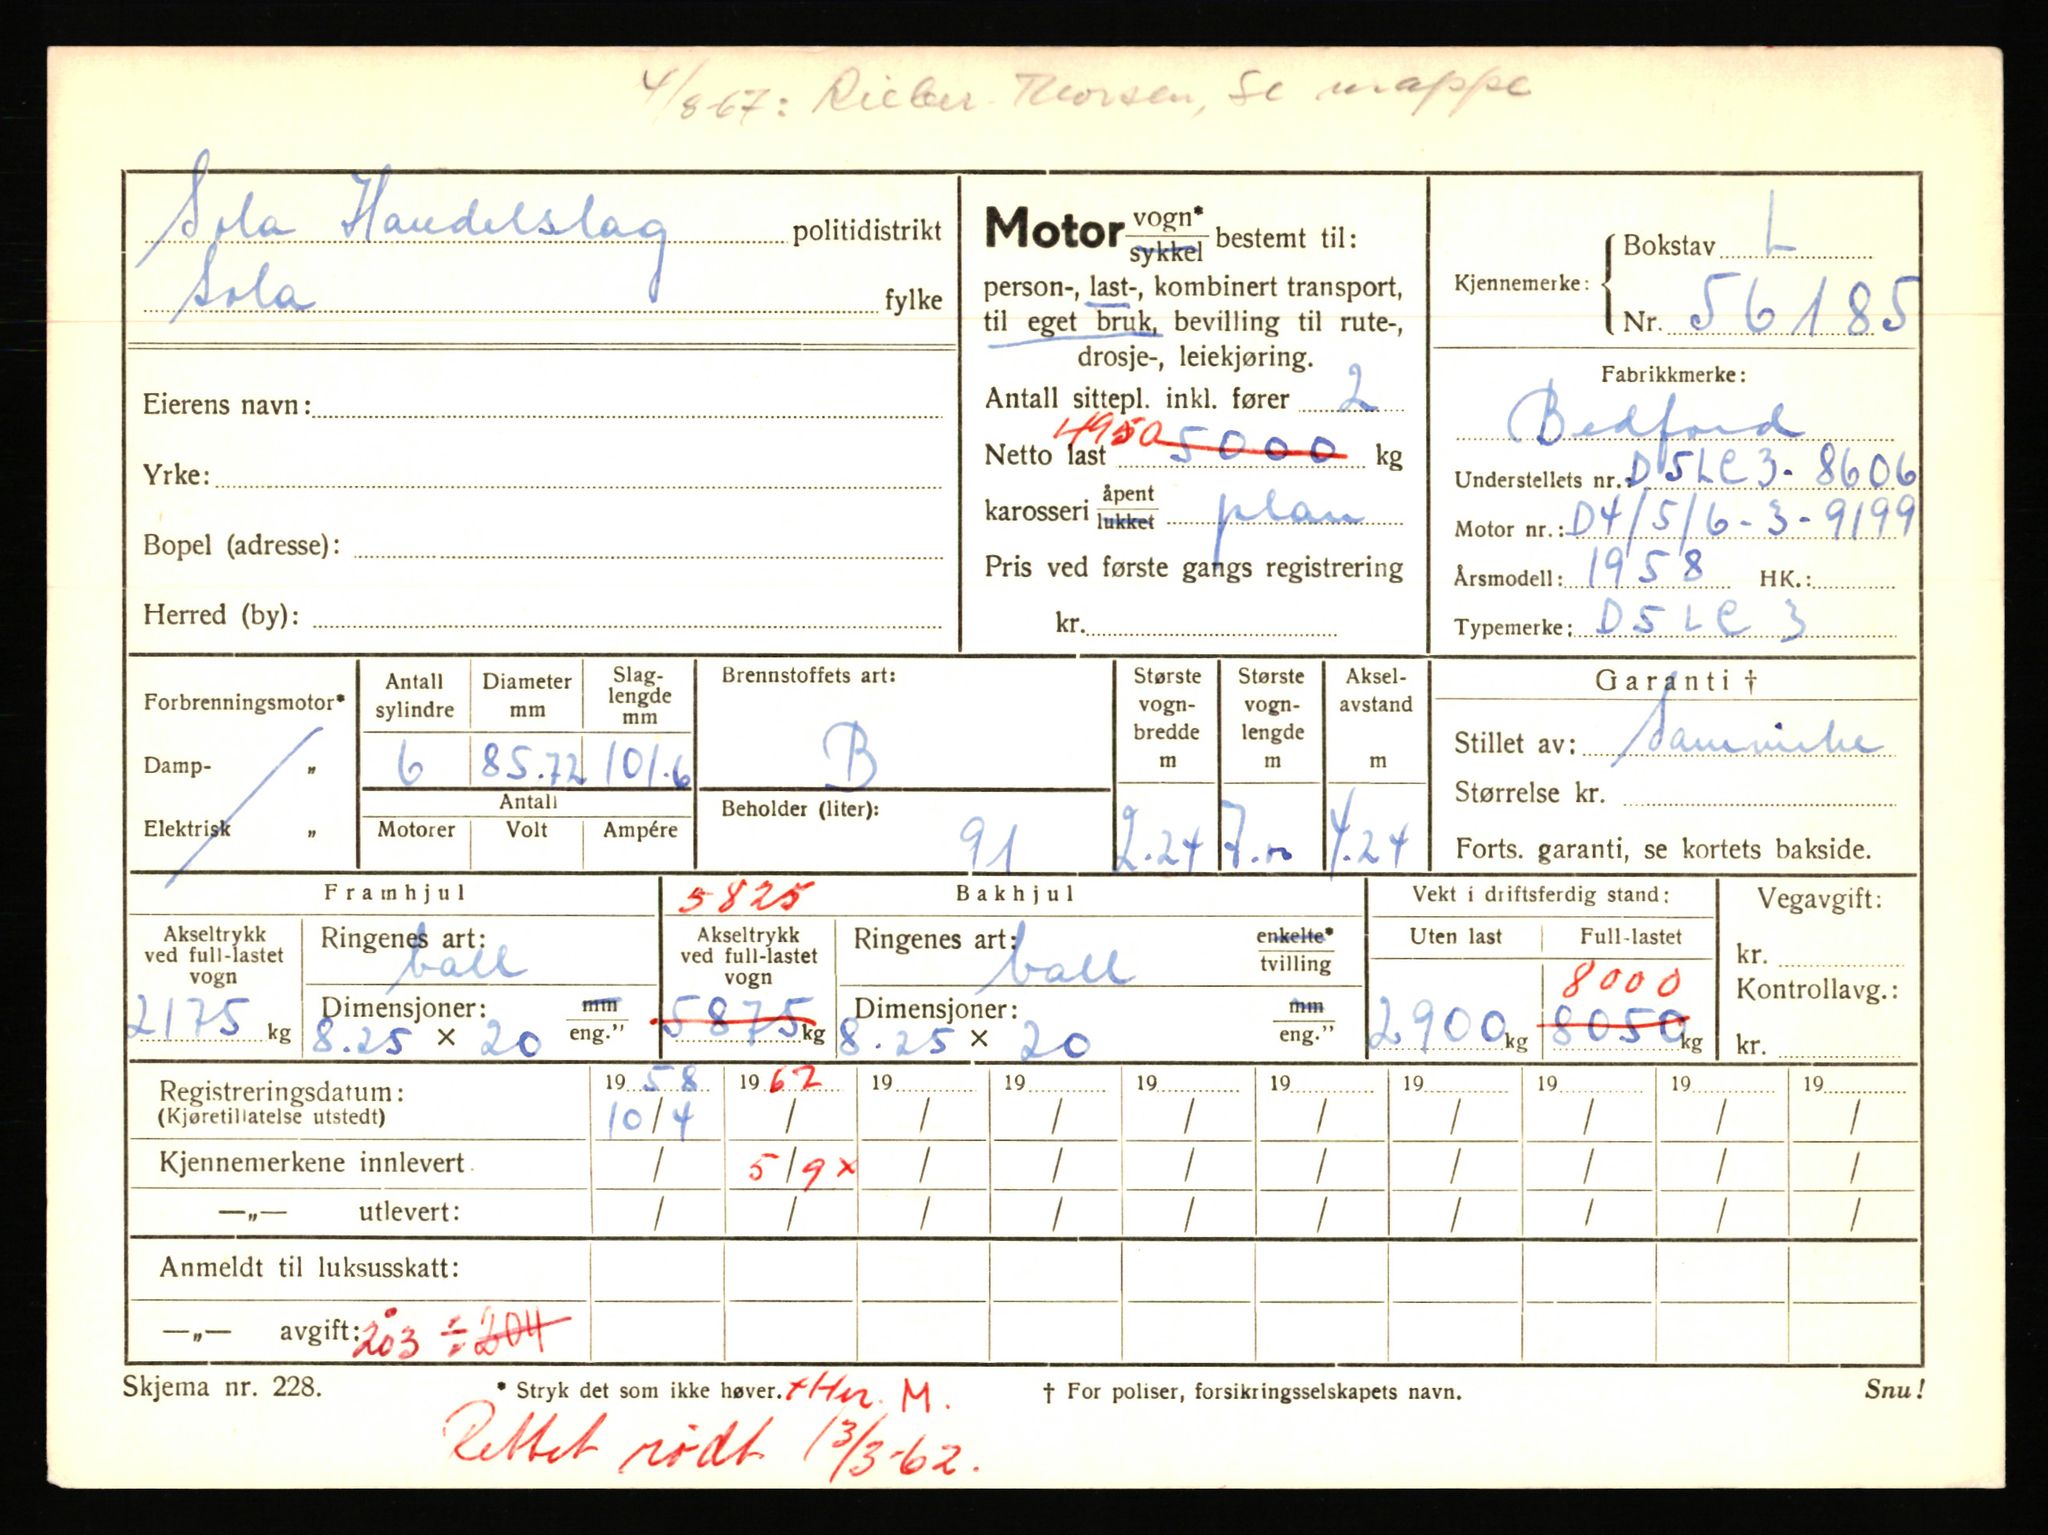 4/8-67: Rieber-Thorsen, Se mappe
Sola Handelslag politidistrikt
Sola fylke
Eierens navn:
Yrke:
Bopel (adresse):
Herred (by):
Motor vogn* / sykkel bestemt til:
person-, last-, kombinert transport,
til eget bruk, bevilling til rute-,
drosje-, leiekjøring.
Antall sittepl. inkl. fører 2
Netto last 4950 5000 kg
karosseri åpent / lukket plan
Pris ved første gangs registrering
kr.
Kjennemerke: Bokstav L
Nr. 56185
Fabrikkmerke:
Bedford
Understellets nr.: D5LC3-8606
Motor nr.: D4/5/6-3-9199
Årsmodell: 1958 HK.:
Typemerke: D5LC3
Forbrenningsmotor*
Damp- „
Elektrisk „
Antall sylindre 6
Diameter mm 85.72
Slag-lengde mm 101.6
Antall
Motorer Volt Ampére
Brennstoffets art:
B
Beholder (liter):
91
Største vogn-bredde m 2.24
Største vogn-lengde m 7.00
Aksel-avstand m 4.24
Garanti †
Stillet av: Samvirke
Størrelse kr.
Forts. garanti, se kortets bakside.
Framhjul
Akseltrykk ved full-lastet vogn
2175 kg
Ringenes art: ball
Dimensjoner: mm / eng."
8.25 × 20
5825 Bakhjul
Akseltrykk ved full-lastet vogn
5875 kg
Ringenes art: ball enkelte* / tvilling
Dimensjoner: mm / eng."
8.25 × 20
Vekt i driftsferdig stand:
Uten last Full-lastet
8000
2900 kg 8050 kg
Vegavgift:
kr.
Kontrollavg.:
kr.
Registreringsdatum: 1958 1962 19 19 19 19 19 19 19 19
(Kjøretillatelse utstedt) 10/4 / / / / / / / / /
Kjennemerkene innlevert / 5/9 x / / / / / / / /
—„— utlevert: / / / / / / / / / /
Anmeldt til luksusskatt:
—„— avgift: 203 ÷ 204
Skjema nr. 228. * Stryk det som ikke høver. † For poliser, forsikringsselskapets navn. Snu!
M.
Rettet rødt 13/3-62.